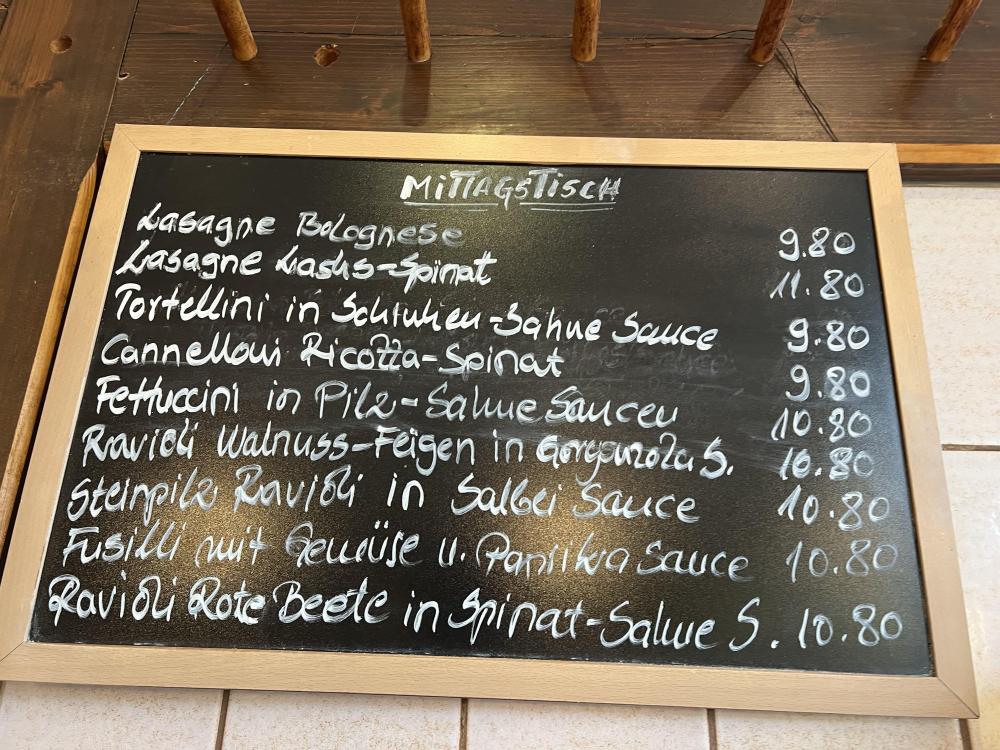 MiTTAGSTiSCH
Lasagne Bolognese 9.80
Lasagne Lachs-Spinat 11.80
Tortellini in Schinken-Sahne Sauce 9.80
Cannelloni Ricotta-Spinat 9.80
Fettuccini in Pilz-Sahne Saucen 10.80
Ravioli Walnuss-Feigen in Gorgonzola S. 10.80
Steinpilz Ravioli in Salbei Sauce 10.80
Fusilli mit Gemüse u. Paprika Sauce 10.80
Ravioli Rote Beete in Spinat-Sahne S. 10.80